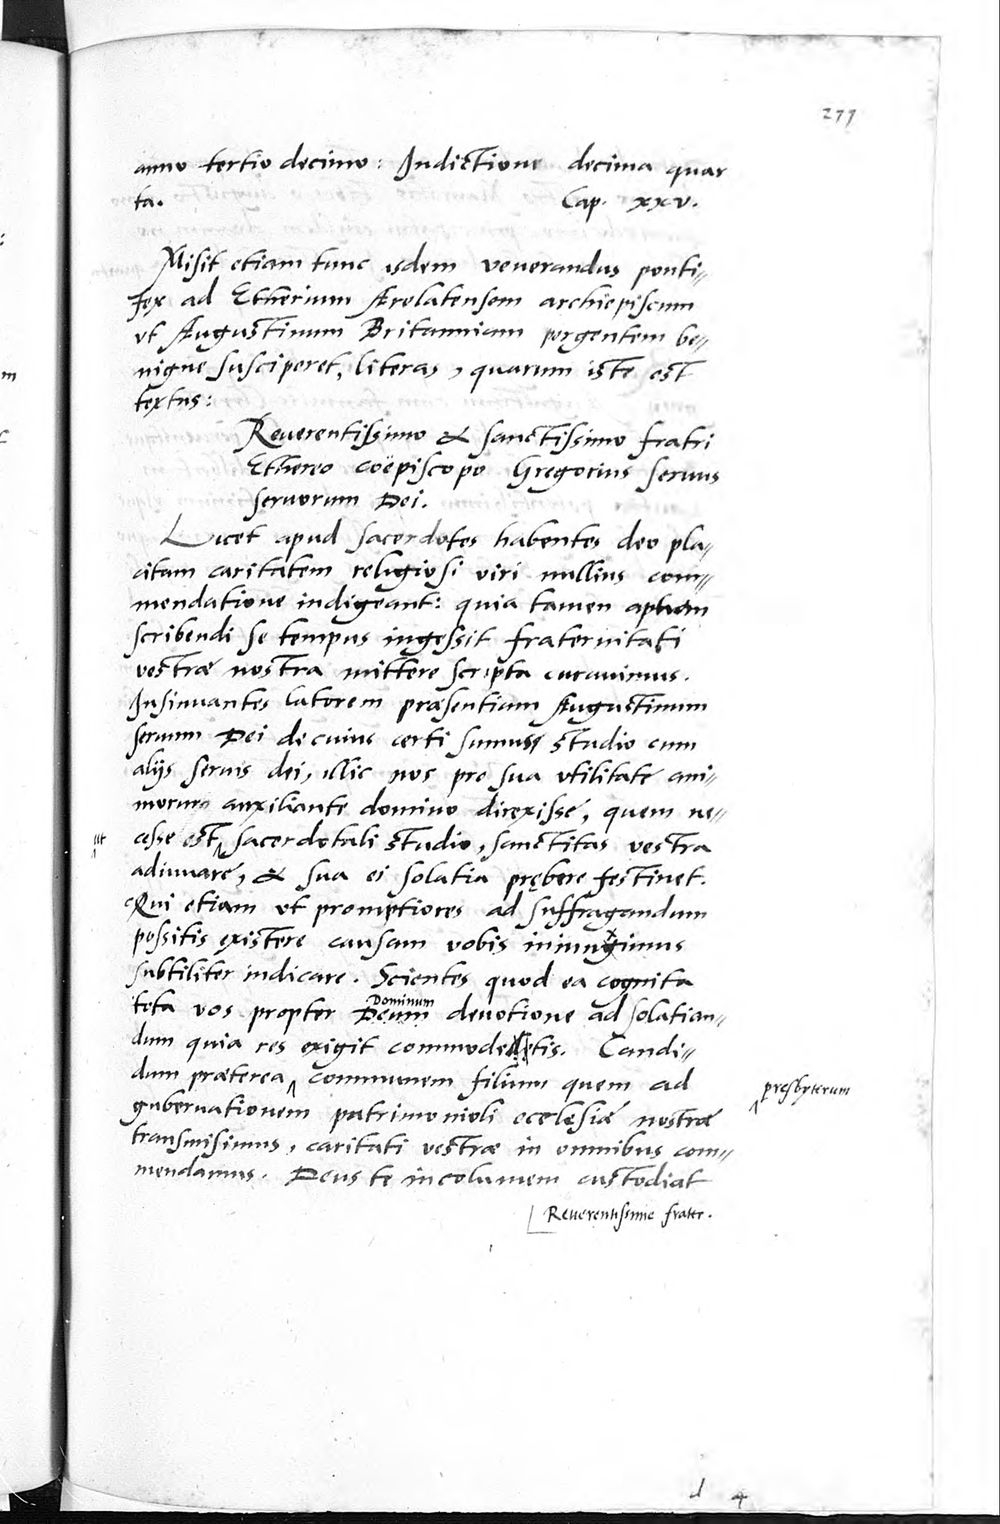 277
anno tertio decimo: Indictione decima quar
ta. Cap. xxv.
Misit etiam tunc isdem venerandus ponti=
fex ad Etherium Arelatensem archiepiscum
ut Augustinum Britanniam pergentem be=
nigne susciperet, literas, quarum iste est
textus:
Reuerentissimo & sanctissimo fratri
Ethereo coëpiscopo Gregorius seruus
seruorum Dei.
Licet apud sacerdotes habentes deo pla=
citam caritatem religiosi viri nullius com=
mendatione indigeant: quia tamen aptum
scribendi se tempus ingessit fraternitati
vestræ nostra mittere scripta curauimus.
Insinuantes latorem præsentium Augustinum
seruum Dei de cuius certi sumus studio cum
alijs seruis dei, illic nos pro sua utilitate ani=
morum auxiliante domino direxisse, quem ne=
ut
cesse est sacerdotali studio, sanctitas vestra
adiuuare, & sua ei solatia prębere festinet.
Qui etiam ut promptiores ad suffragandum
possitis existere causam vobis iniungimus
subtiliter indicare. Scientes quod ea cognita
Dominum
tota vos propter Deum deuotione ad solatian=
dum quia res exigit commodetis. Candi=
dum præterea communem filium quem ad
presbyterum
gubernationem patrimonioli ecclesiæ nostræ
transmisimus, caritati vestræ in omnibus com=
mendamus. Deus te incolumem custodiat
Reuerentissime frater.
d 4